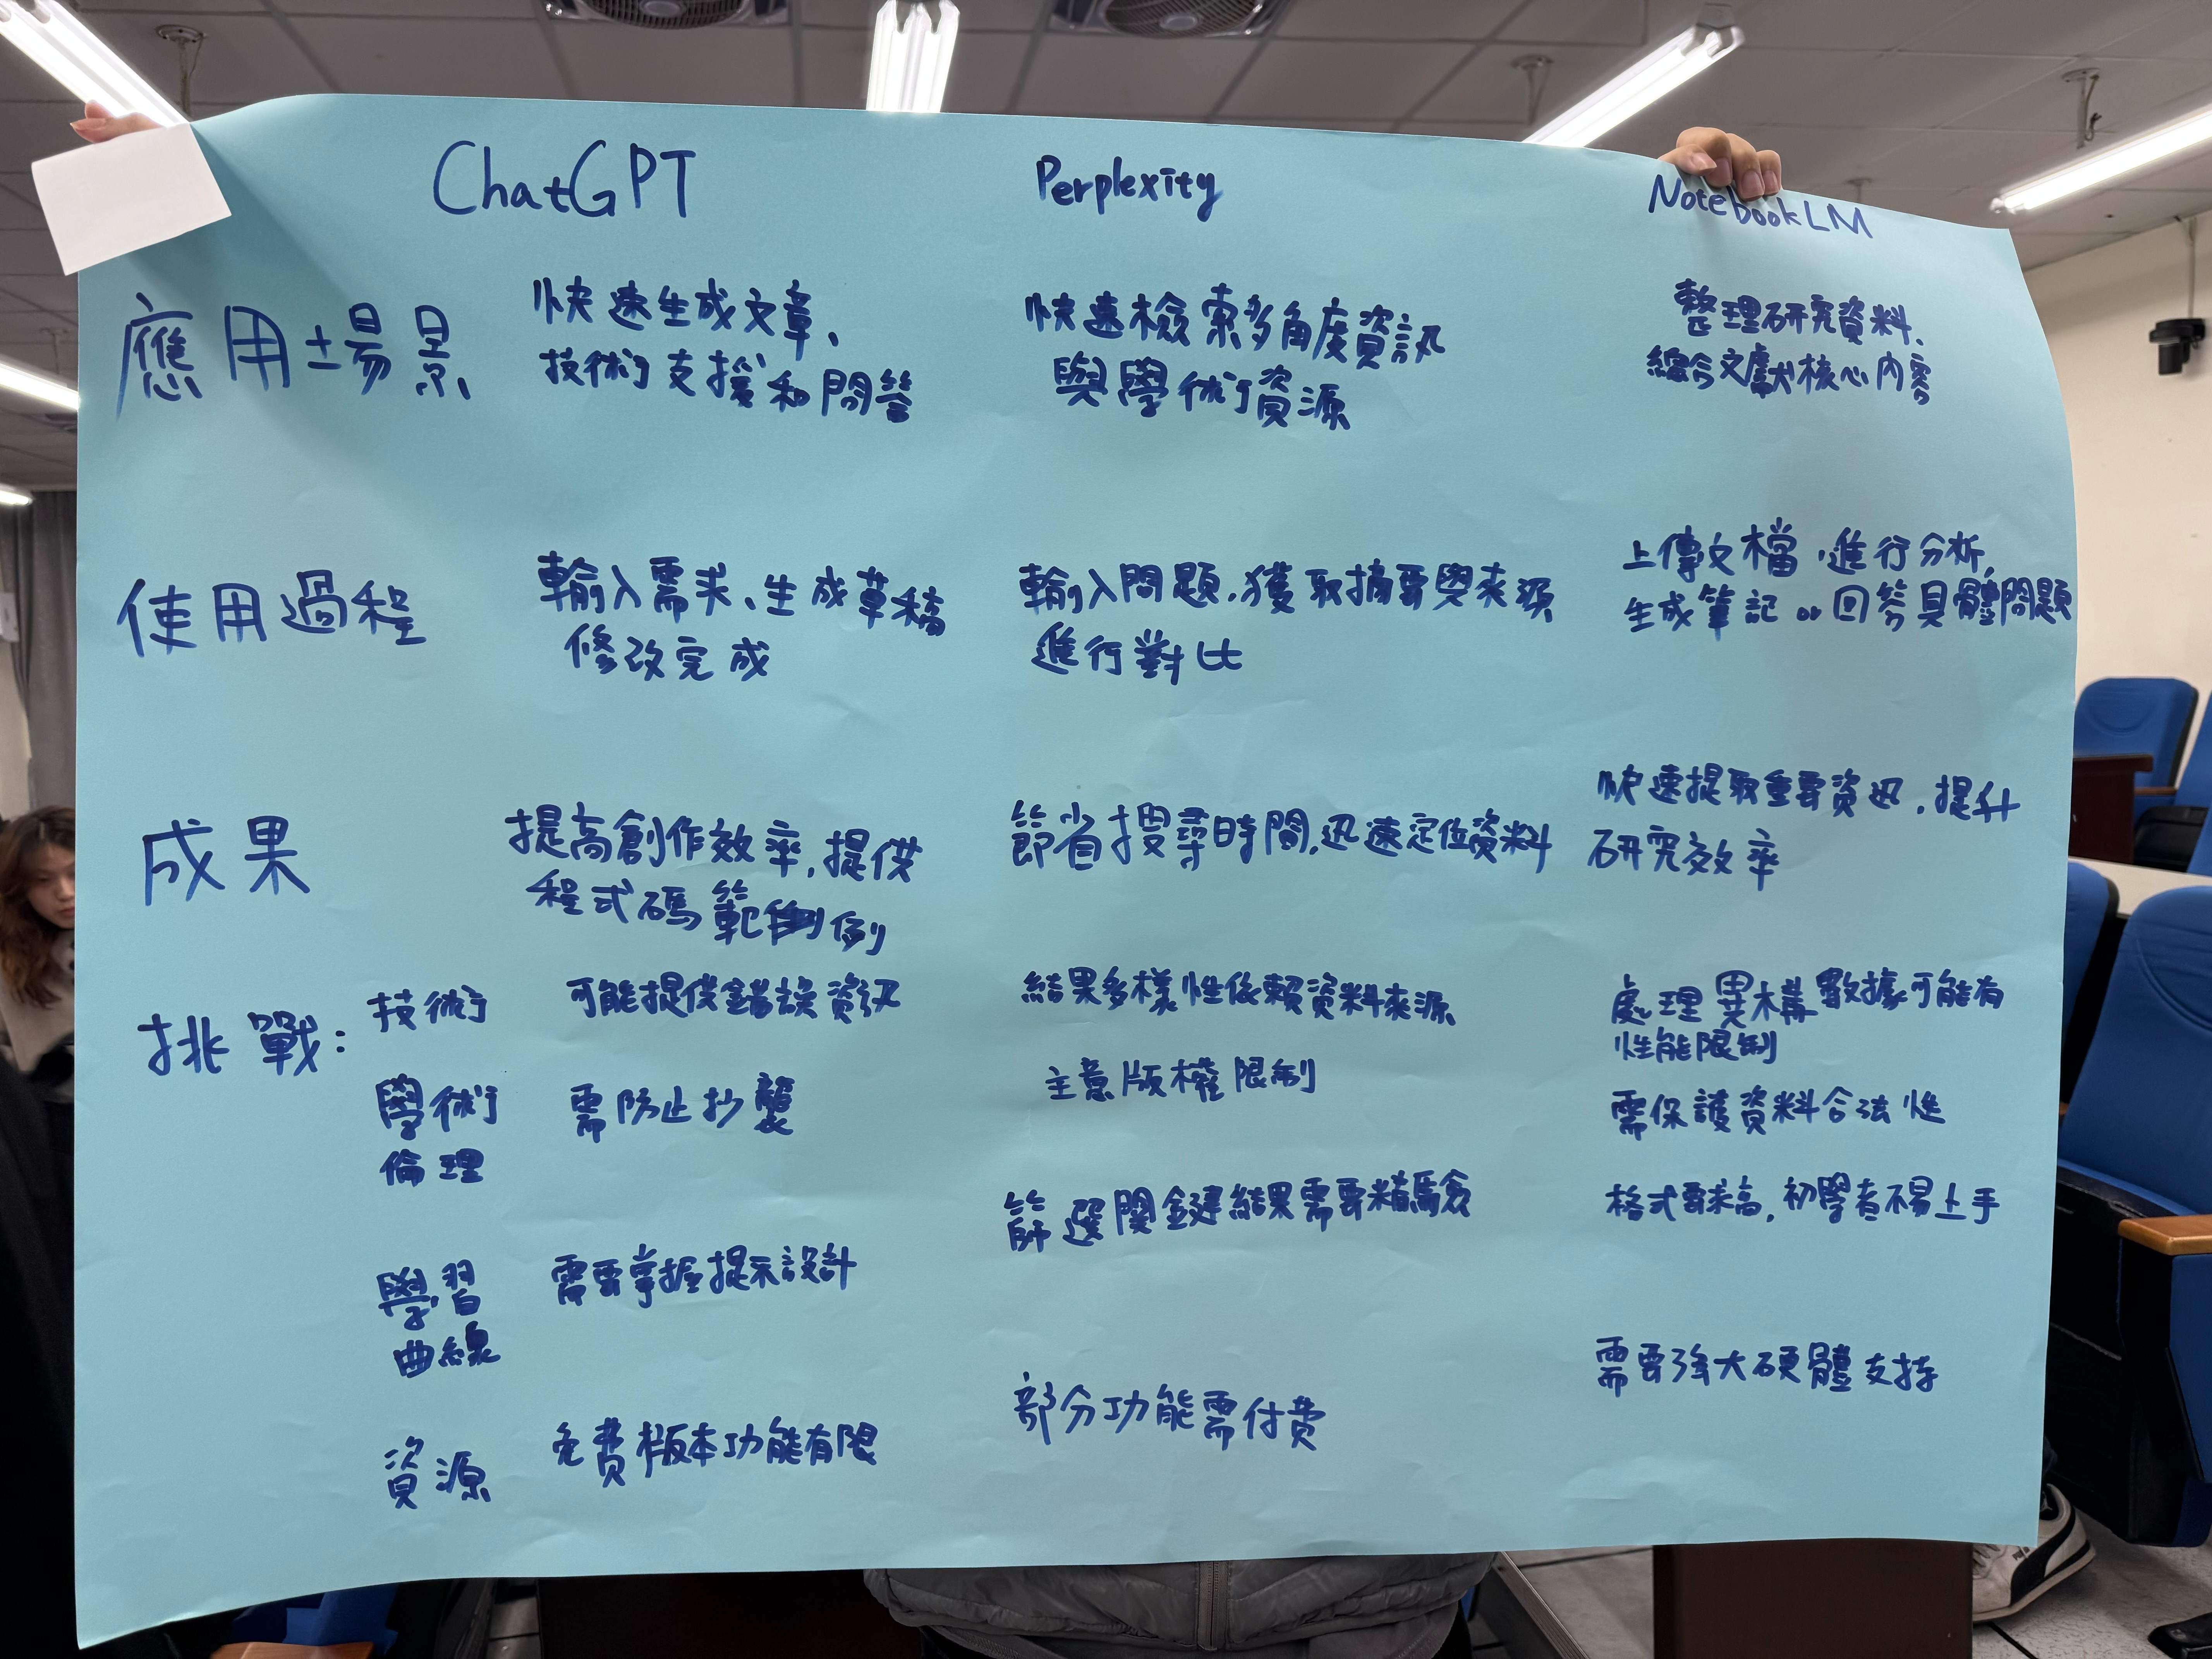 ChatGPT Perplexity NotebookLM
應用場景
快速生成文章、
技術支援和問答
快速檢索多角度資訊
與學術資源
整理研究資料、
綜合文獻核心內容
使用過程
輸入需求、生成草稿
修改完成
輸入問題,獲取摘要與來源
進行對比
上傳文檔,進行分析,
生成筆記or回答具體問題
成果
提高創作效率,提供
程式碼範例
節省搜尋時間,迅速定位資料
快速提取重要資迅,提升
研究效率
挑戰:
技術
可能提供錯誤資訊
結果多樣性依賴資料來源
處理異構數據可能有
性能限制
學術
倫理
需防止抄襲
主意版權限制
需保護資料合法性
學習
曲線
需要掌握提示設計
篩選關鍵結果需要經驗
格式要求高,初學者不易上手
資源
免費版本功能有限
部分功能需付費
需要強大硬體支持